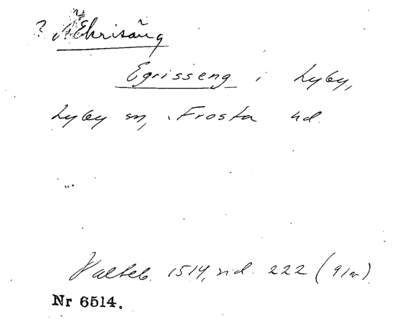 ? Ekrisäng
Egrisseng i Lyby,
Lyby sn, Frosta hd.
Halleb. 1514, sid. 222 (91a)
Nr 6514.